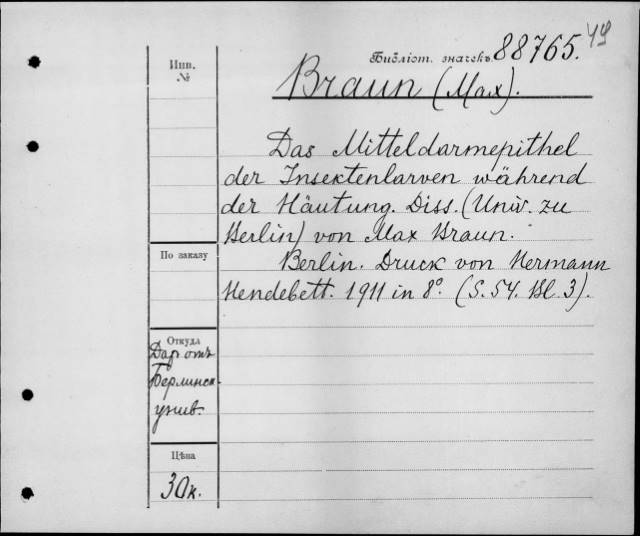 49
Библіот. значекъ 88765.
Инв.
№
Braun (Max).
Das Mitteldarmepithel
der Insektenlarven während
der Häutung. Diss. (Univ. zu
Berlin) von Max Braun.
По заказу
Berlin. Druck von Hermann
Hendebett. 1911 in 8º. (S. 54. Bl. 3).
Откуда
Дар отъ
Берлинск.
унив.
Цѣна
30к.